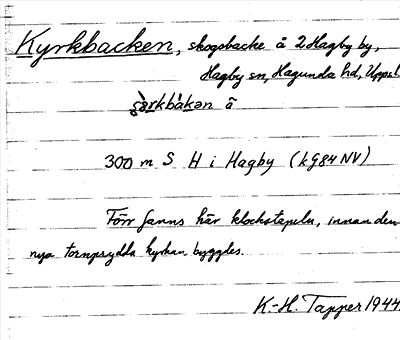 Kyrkbacken, skogsbacke å 2 Hagby by,
Hagby sn, Hagunda hd, Uppsl.
300 m S H i Hagby (kg84NV)
Förr fanns här klockstapeln, innan den
nya tornprydda kyrkan byggdes.
K.-H. Tapper 1944